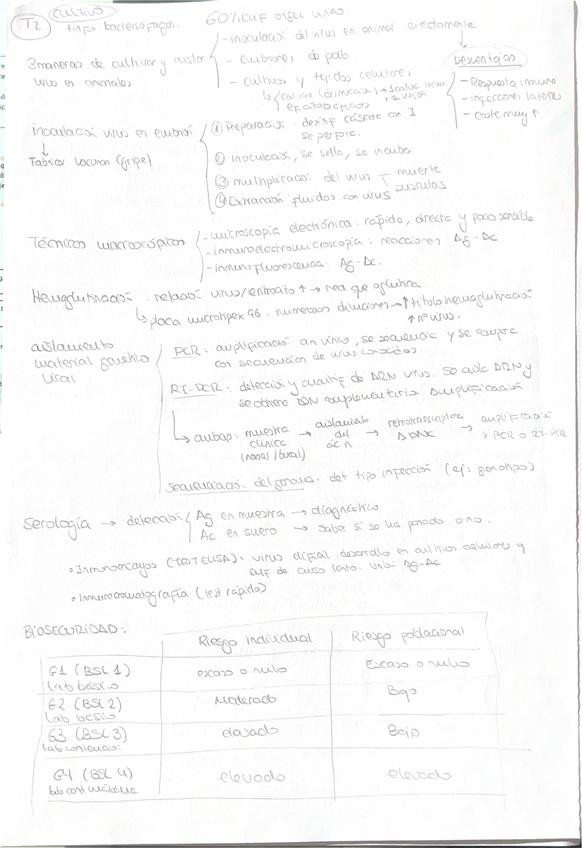 T2 Cultivo
tipo bacteriófagos.
3 maneras de cultivar y aislar virus en animales
- inoculación del virus en animal directamente
- embriones de pollo
- cultivos y tejidos celulares
Desventajas
- Respuesta inmune
- infecciones latentes
- Coste muy ↑
inoculación virus en embrión
↓
Fabricar vacunas (gripe)
① Preparación: desinf cáscara con I
se perfora.
② inoculación, se sella, se incuba
③ multiplicación del virus muerte
pústulas
④ Extracción fluidos con virus
Técnicas macroscópicas
- microscopía electrónica: rápido, directa y poco sensible
- inmunoelectromicroscopía: reacciones Ag-Ac
- inmunofluorescencia: Ag-Ac.
Hemaglutinación: relación virus/eritrocito ↑ → red que aglutina
↳ placa 96. numerosas diluciones → ↑ título hemaglutinación
↑ nº virus.
aislamiento
material genético
viral
PCR: amplificación virus, se secuencia y se compara
con secuencias de virus conocidos
RT-PCR: detección y cuantif de ARN virus. Se aísla ARN y
se obtiene ADN complementario Amplificación
↳ ambas: muestra clínica (nasal/bucal) → aislamiento del → retrotranscriptasa → amplificación x PCR o RT-PCR
secuenciación del genoma: det tipo infección (ej: genotipo)
Serología → detección
Ag en muestra → diagnóstico
Ac en suero → saber si se ha pasado o no.
• Inmunoensayos (TEST ELISA): virus difícil desarrollo en cultivos celulares y
enf de curso lento. Unión Ag-Ac
• Inmunocromatografía (test rápido)
BIOSEGURIDAD:
Riesgo individual Riesgo poblacional
G1 (BSL 1) lab básico escaso o nulo Escaso o nulo
G2 (BSL 2) lab básico Moderado Bajo
G3 (BSL 3) lab contención elevado Bajo
G4 (BSL 4) lab cont máxima elevado elevado